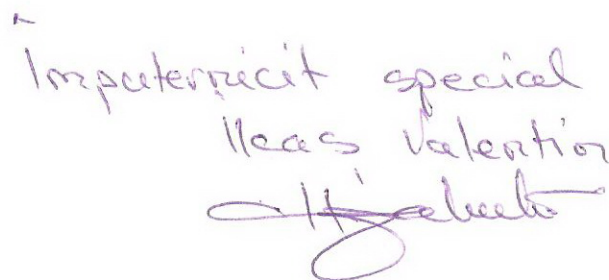 Împuternicit special
Ileas Valentin